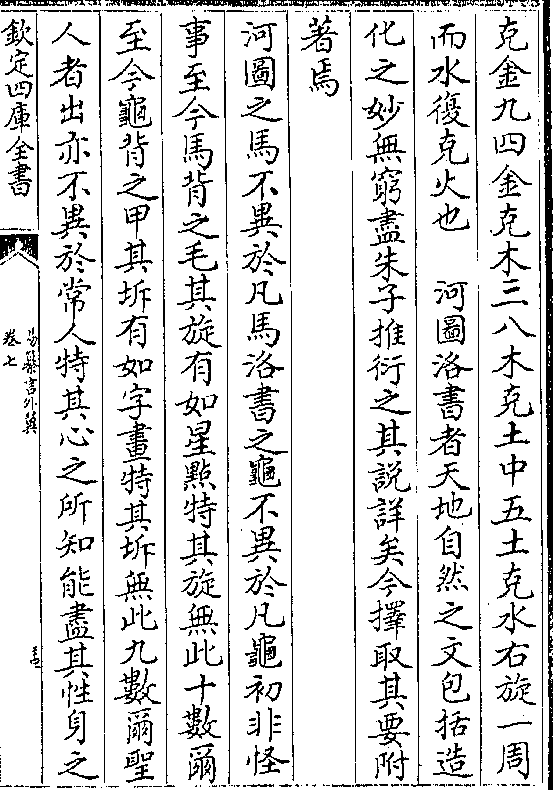 克金九四金克木三八木克土中五土克水右旋一周
而水復克火也　河圖洛書者天地自然之文包括造
化之妙無窮盡朱子推衍之其說詳矣今擇取其要附
著焉
河圖之馬不異於凡馬洛書之龜不異於凡龜初非怪
事至今馬背之毛其旋有如星點特其旋無此十數爾
至今龜背之甲其坼有如字畫特其坼無此九數爾聖
人者出亦不異於常人特其心之所知能盡其性身之
欽定四庫全書
易纂言外翼
卷七